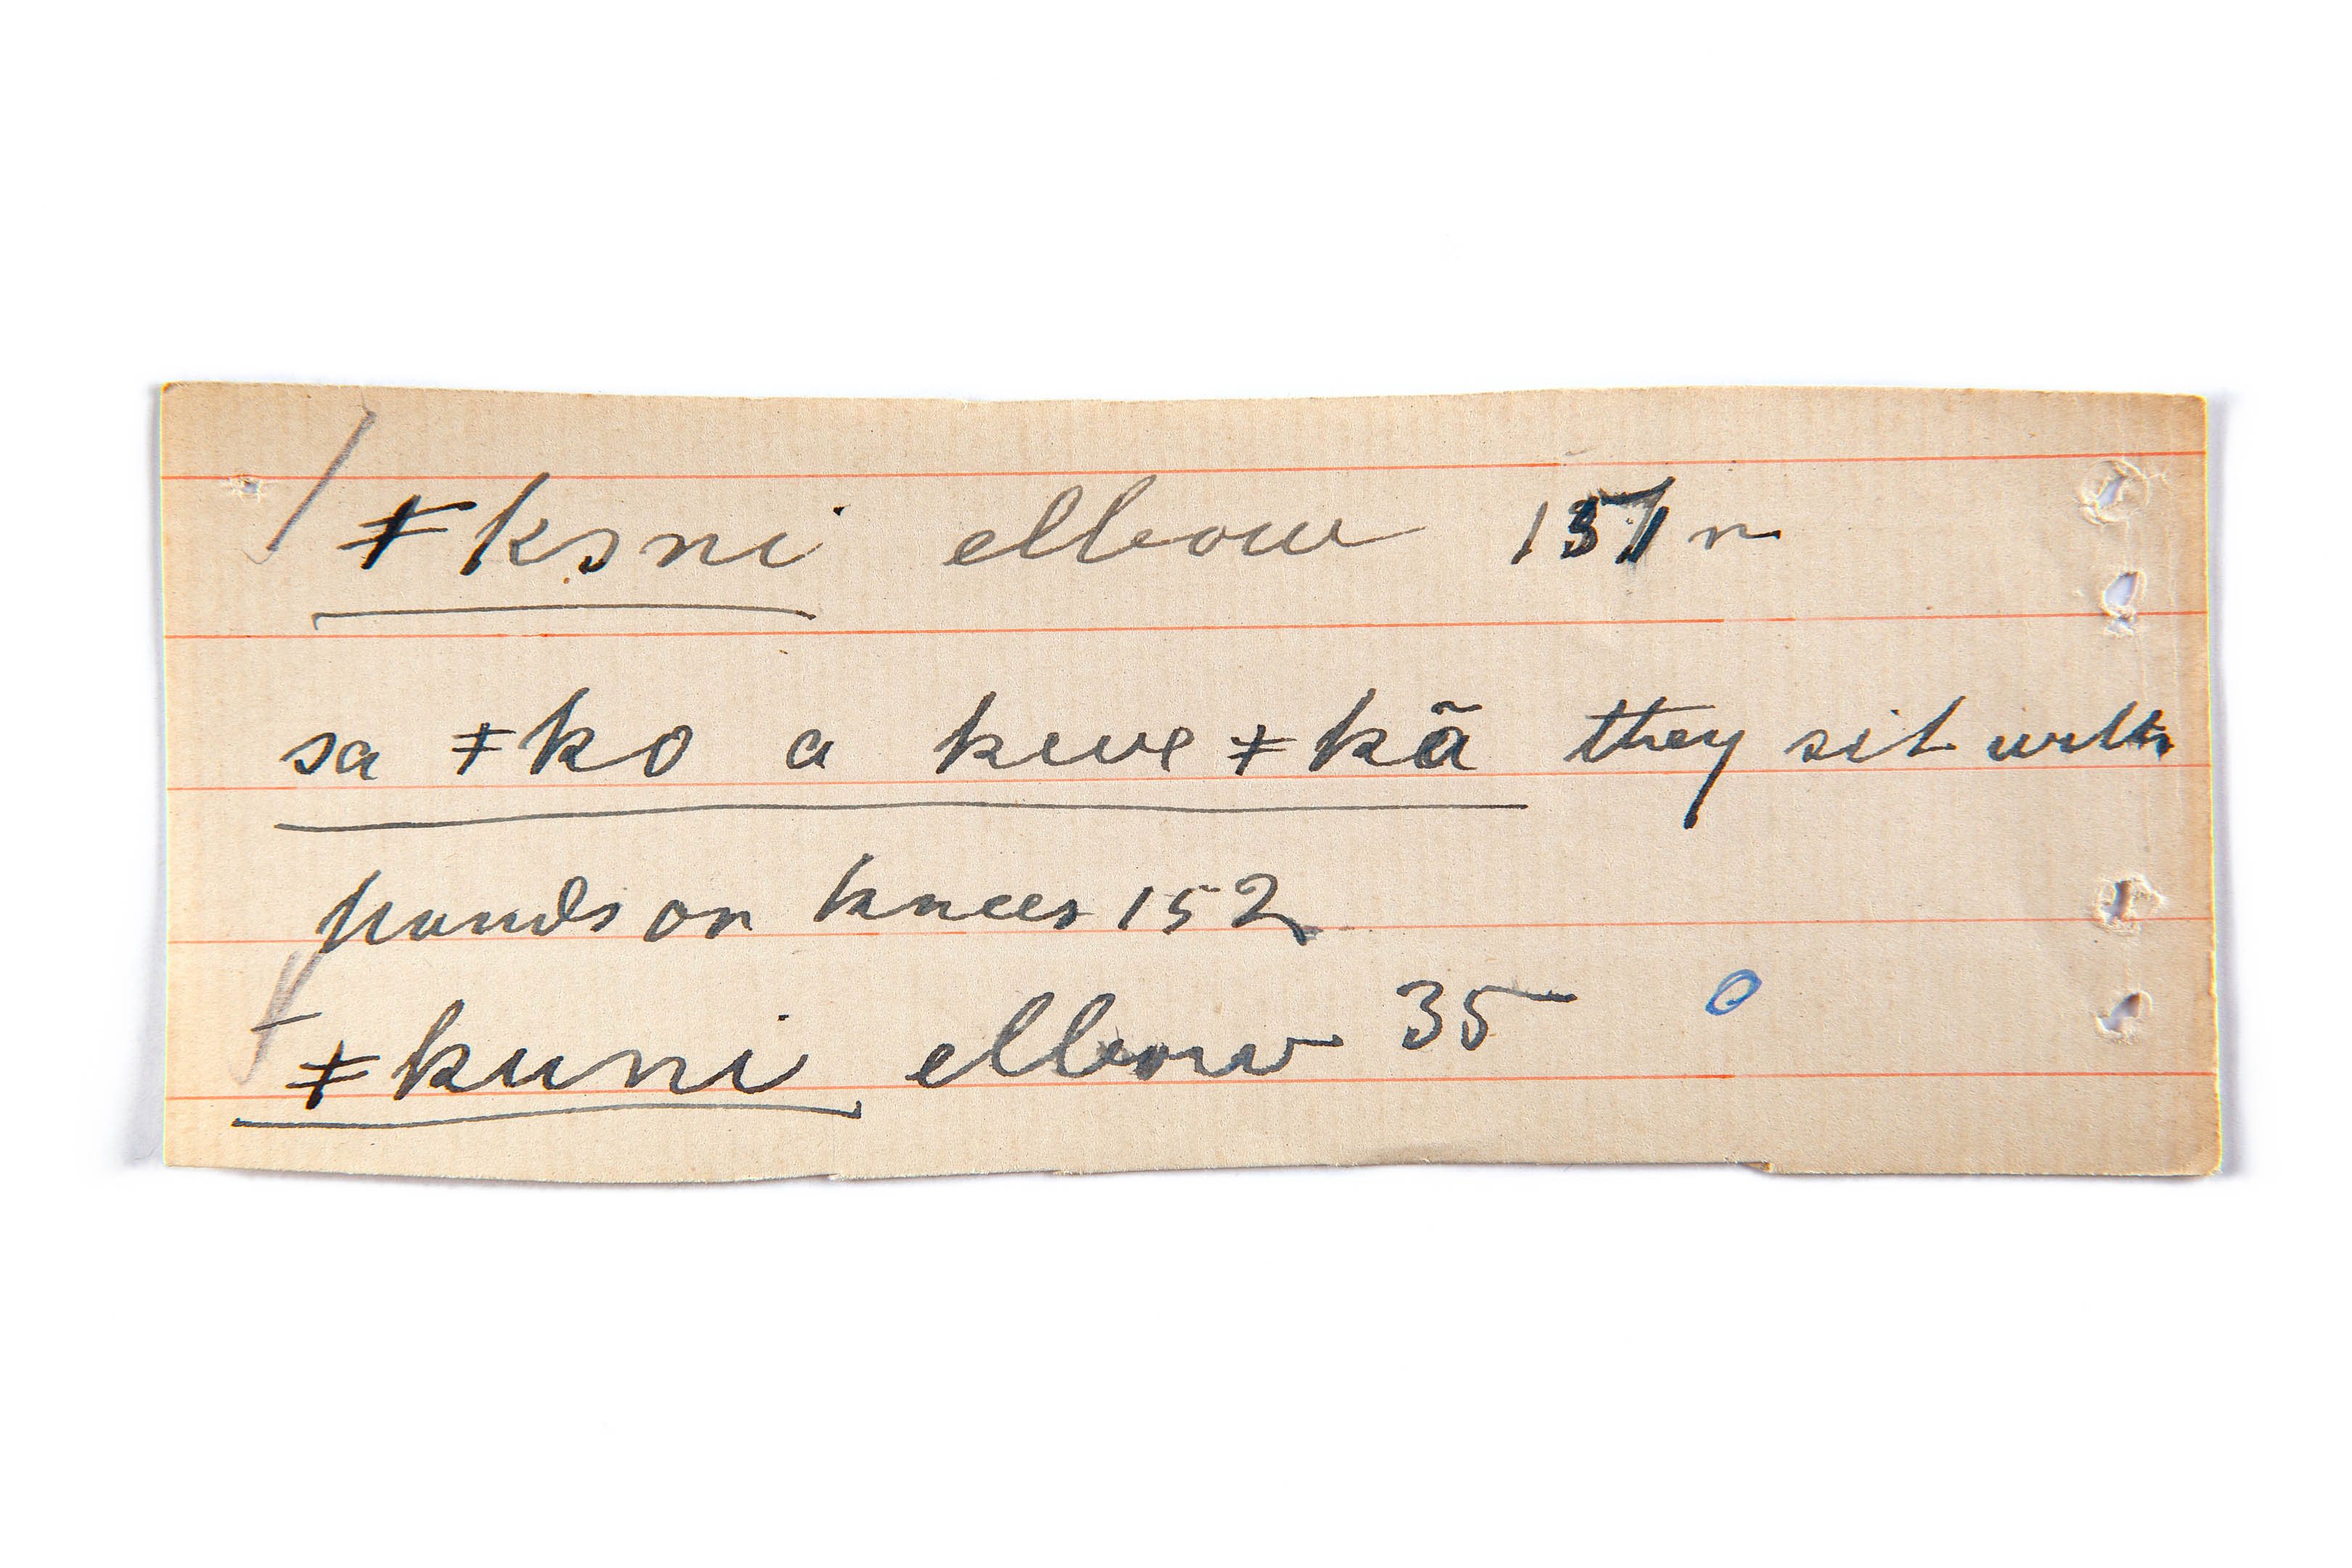 ǂkɔni elbow 151 n
sa ǂko a kuve ǂkã they sit with
hands on knees 152
ǂkuni elbow 35